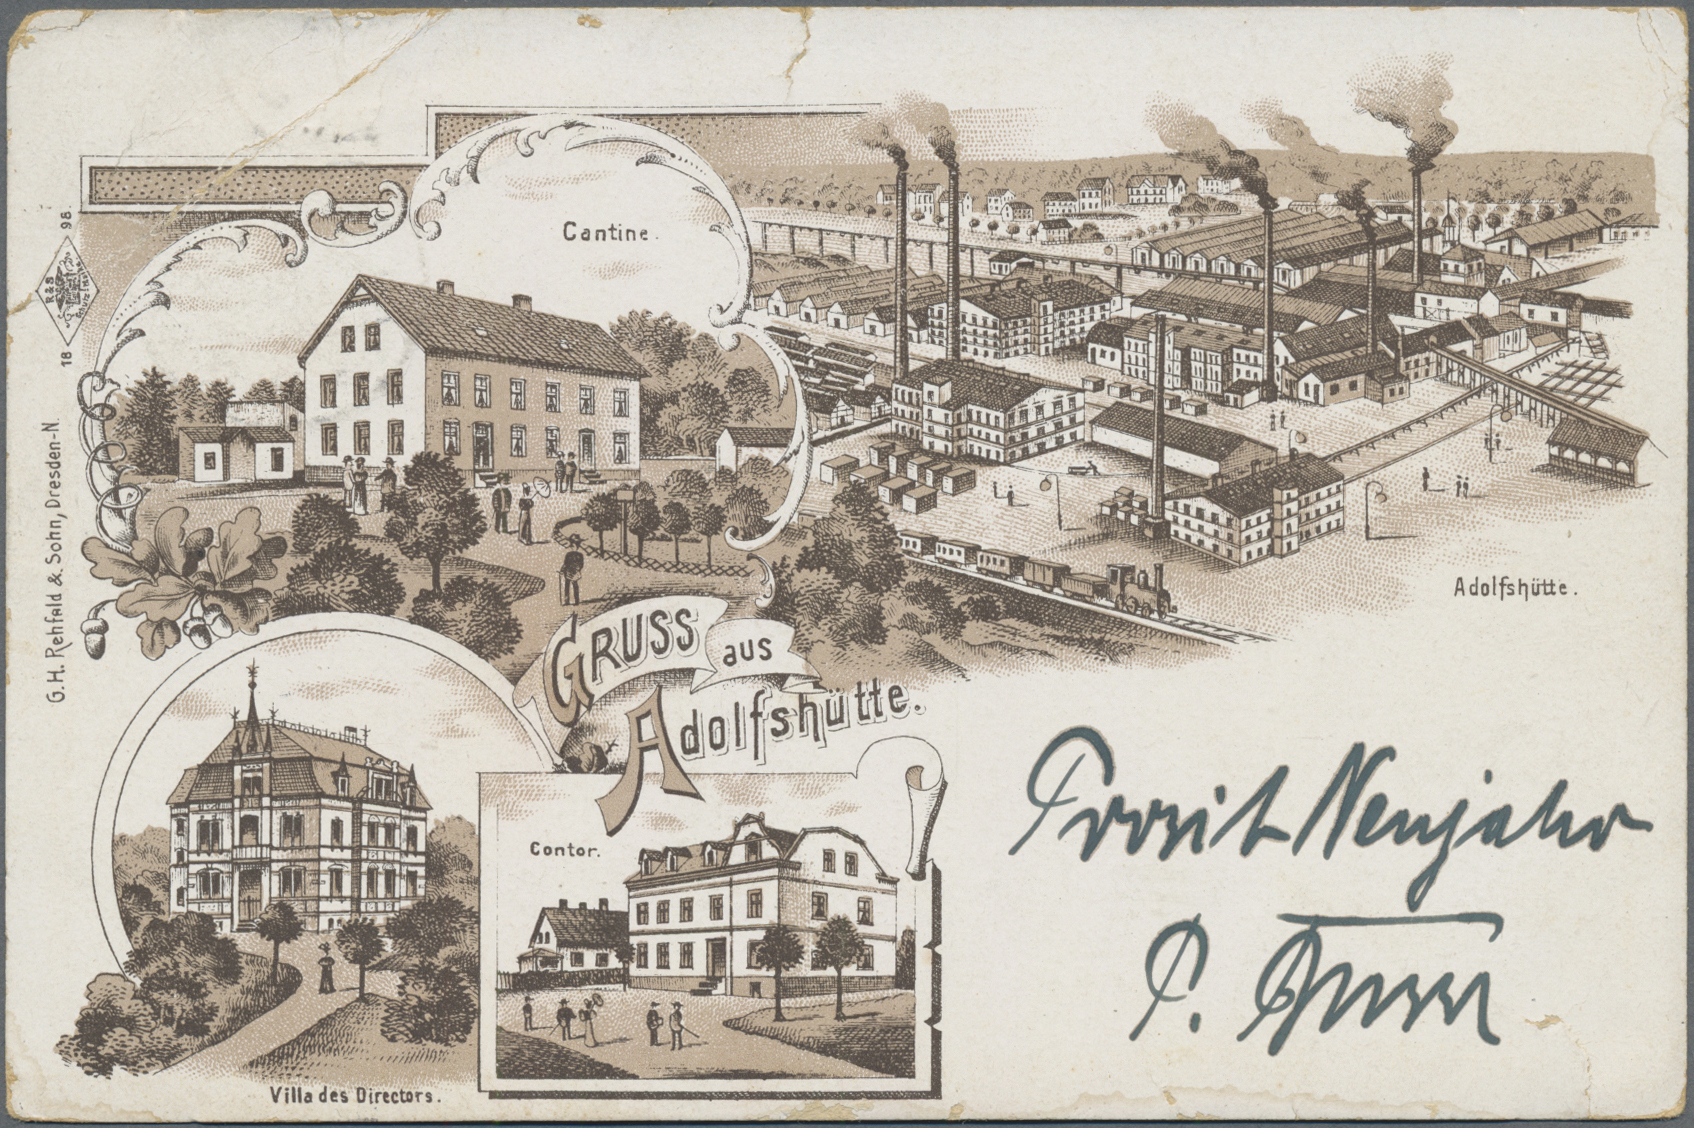 Cantine.
Adolfshütte.
GRUSS
aus
Adolfshütte.
Contor.
Villa des Directors.
G.H. Rehfeld & Sohn, Dresden-N.
18 98.
R & S
Prosit Neujahr
P.